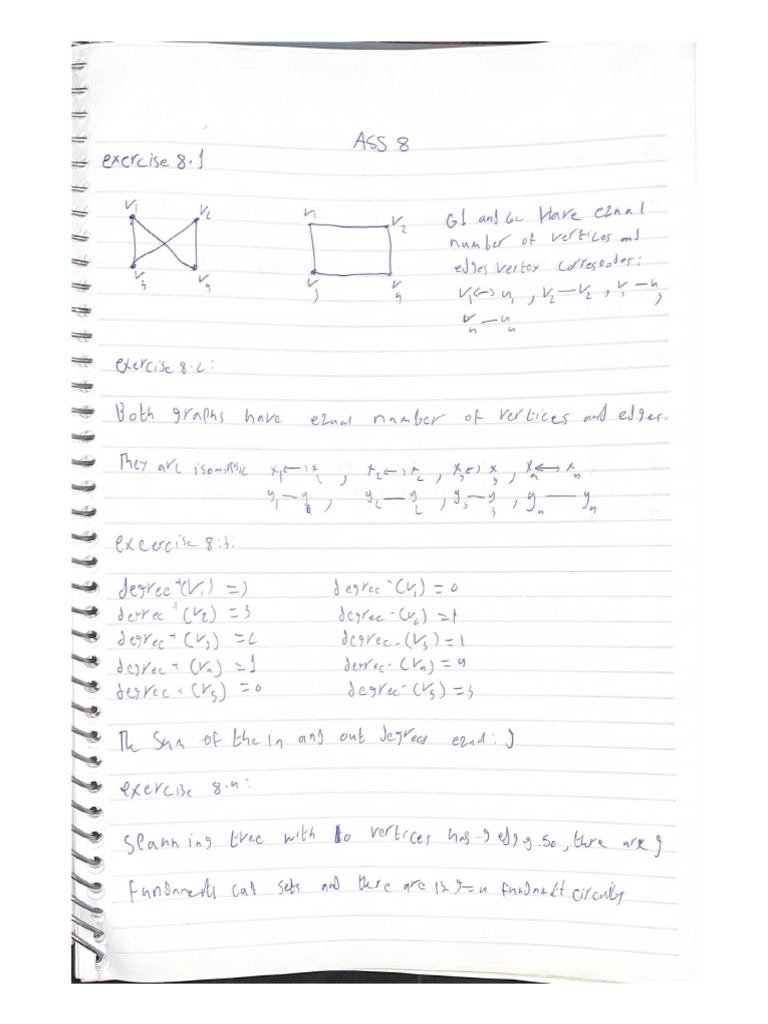 ASS 8
exercise 8.1
V1 V2
V3 V4
V1 V2
V3 V4
G1 and G2 Have equal
number of vertices and
edges vertex
V1 ↔ u1 , V2 — V2 ,
exercise 8.2:
Both graphs have equal number of vertices and edges.
They are x2 ↔ x2 , x3 ↔ x3 , x4 ↔ x4
y1 — y1 , y2 — y2 , y3 — y3 , y4 — y4
exeercise 8.3:
degree + (V1) = 3 degree - (V1) = 0
degree + (V2) = 3 degree - (V2) = 1
degree + (V3) = 2 degree - (V3) = 1
degree + (V4) = 1 degree - (V4) = 4
degree + (V5) = 0 degree - (V5) = 3
The Sum of the in and out degrees equal: 9
exercise 8.4:
spanning tree with 10 vertices has 9 so, there are 9
cut sets and there are circuits